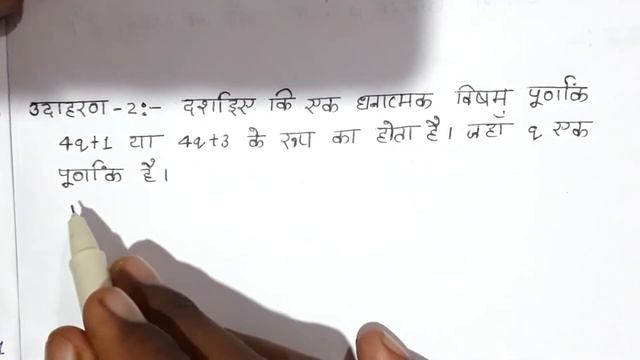 उदाहरण-2:- दर्शाइए कि एक धनात्मक विषम पूर्णांक
4q+1 या 4q+3 के रूप का होता है। जहाँ q एक
पूर्णांक है।